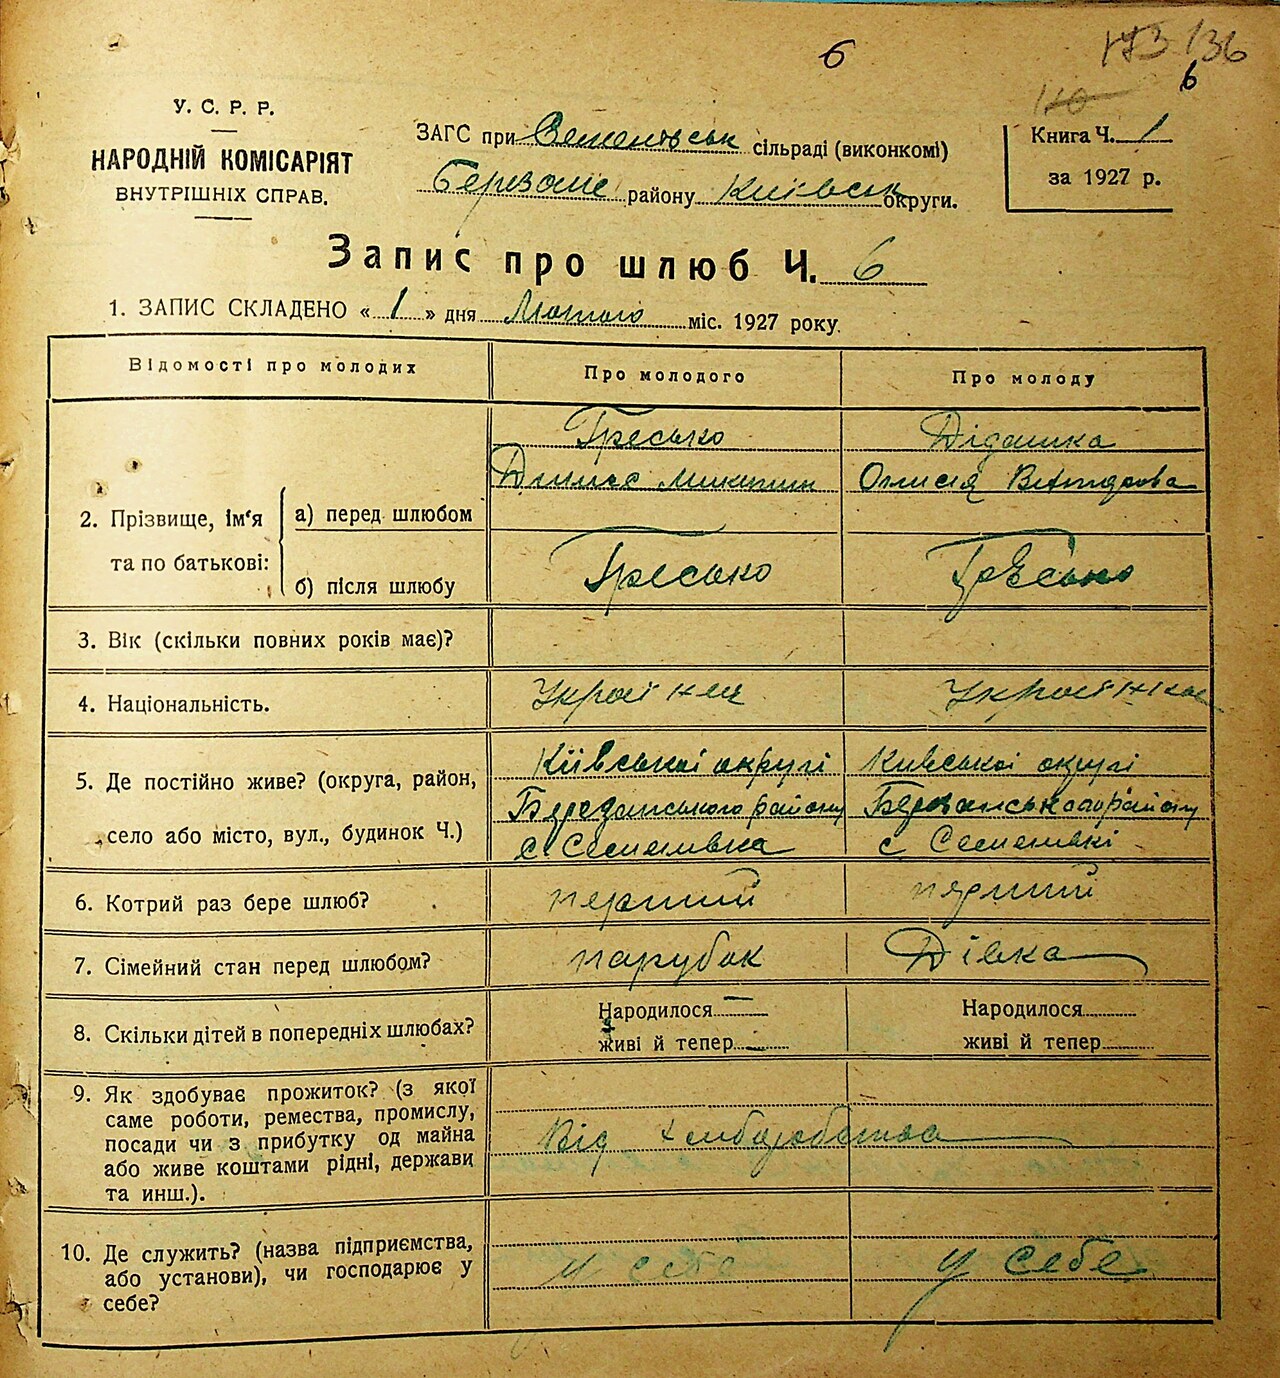 6
173 136
110
6
У. С. Р. Р.
НАРОДНІЙ КОМІСАРІЯТ
ВНУТРІШНІХ СПРАВ.
ЗАГС при Семенівськ сільраді (виконкомі)
району Київськ округи.
Книга Ч. 1
за 1927 р.
Запис про шлюб Ч. 6
1. ЗАПИС СКЛАДЕНО « 1 » дня Лютого міс. 1927 року.
Відомості про молодих
Про молодого
Про молоду
2. Прізвище, ім'я та по батькові:
а) перед шлюбом
Гресько
Микитин
Дідашка
б) після шлюбу
Гресько
Гресько
3. Вік (скільки повних років має)?
4. Національність.
Украінец
Украінка
5. Де постійно живе? (округа, район,
село або місто, вул., будинок Ч.)
Київськоі округі
Березанського району
с Семенівка
Киівськоі округі
Березанського району
с Семенівкі
6. Котрий раз бере шлюб?
перший
перший
7. Сімейний стан перед шлюбом?
парубок
Дівка
8. Скільки дітей в попередніх шлюбах?
Народилося —
живі й тепер —
Народилося
живі й тепер
9. Як здобуває прожиток? (з якої
саме роботи, ремества, промислу,
посади чи з прибутку од майна
або живе коштами рідні, держави
та инш.).
Від хліборобства
10. Де служить? (назва підприємства,
або установи), чи господарює у
себе?
у себе
у себе